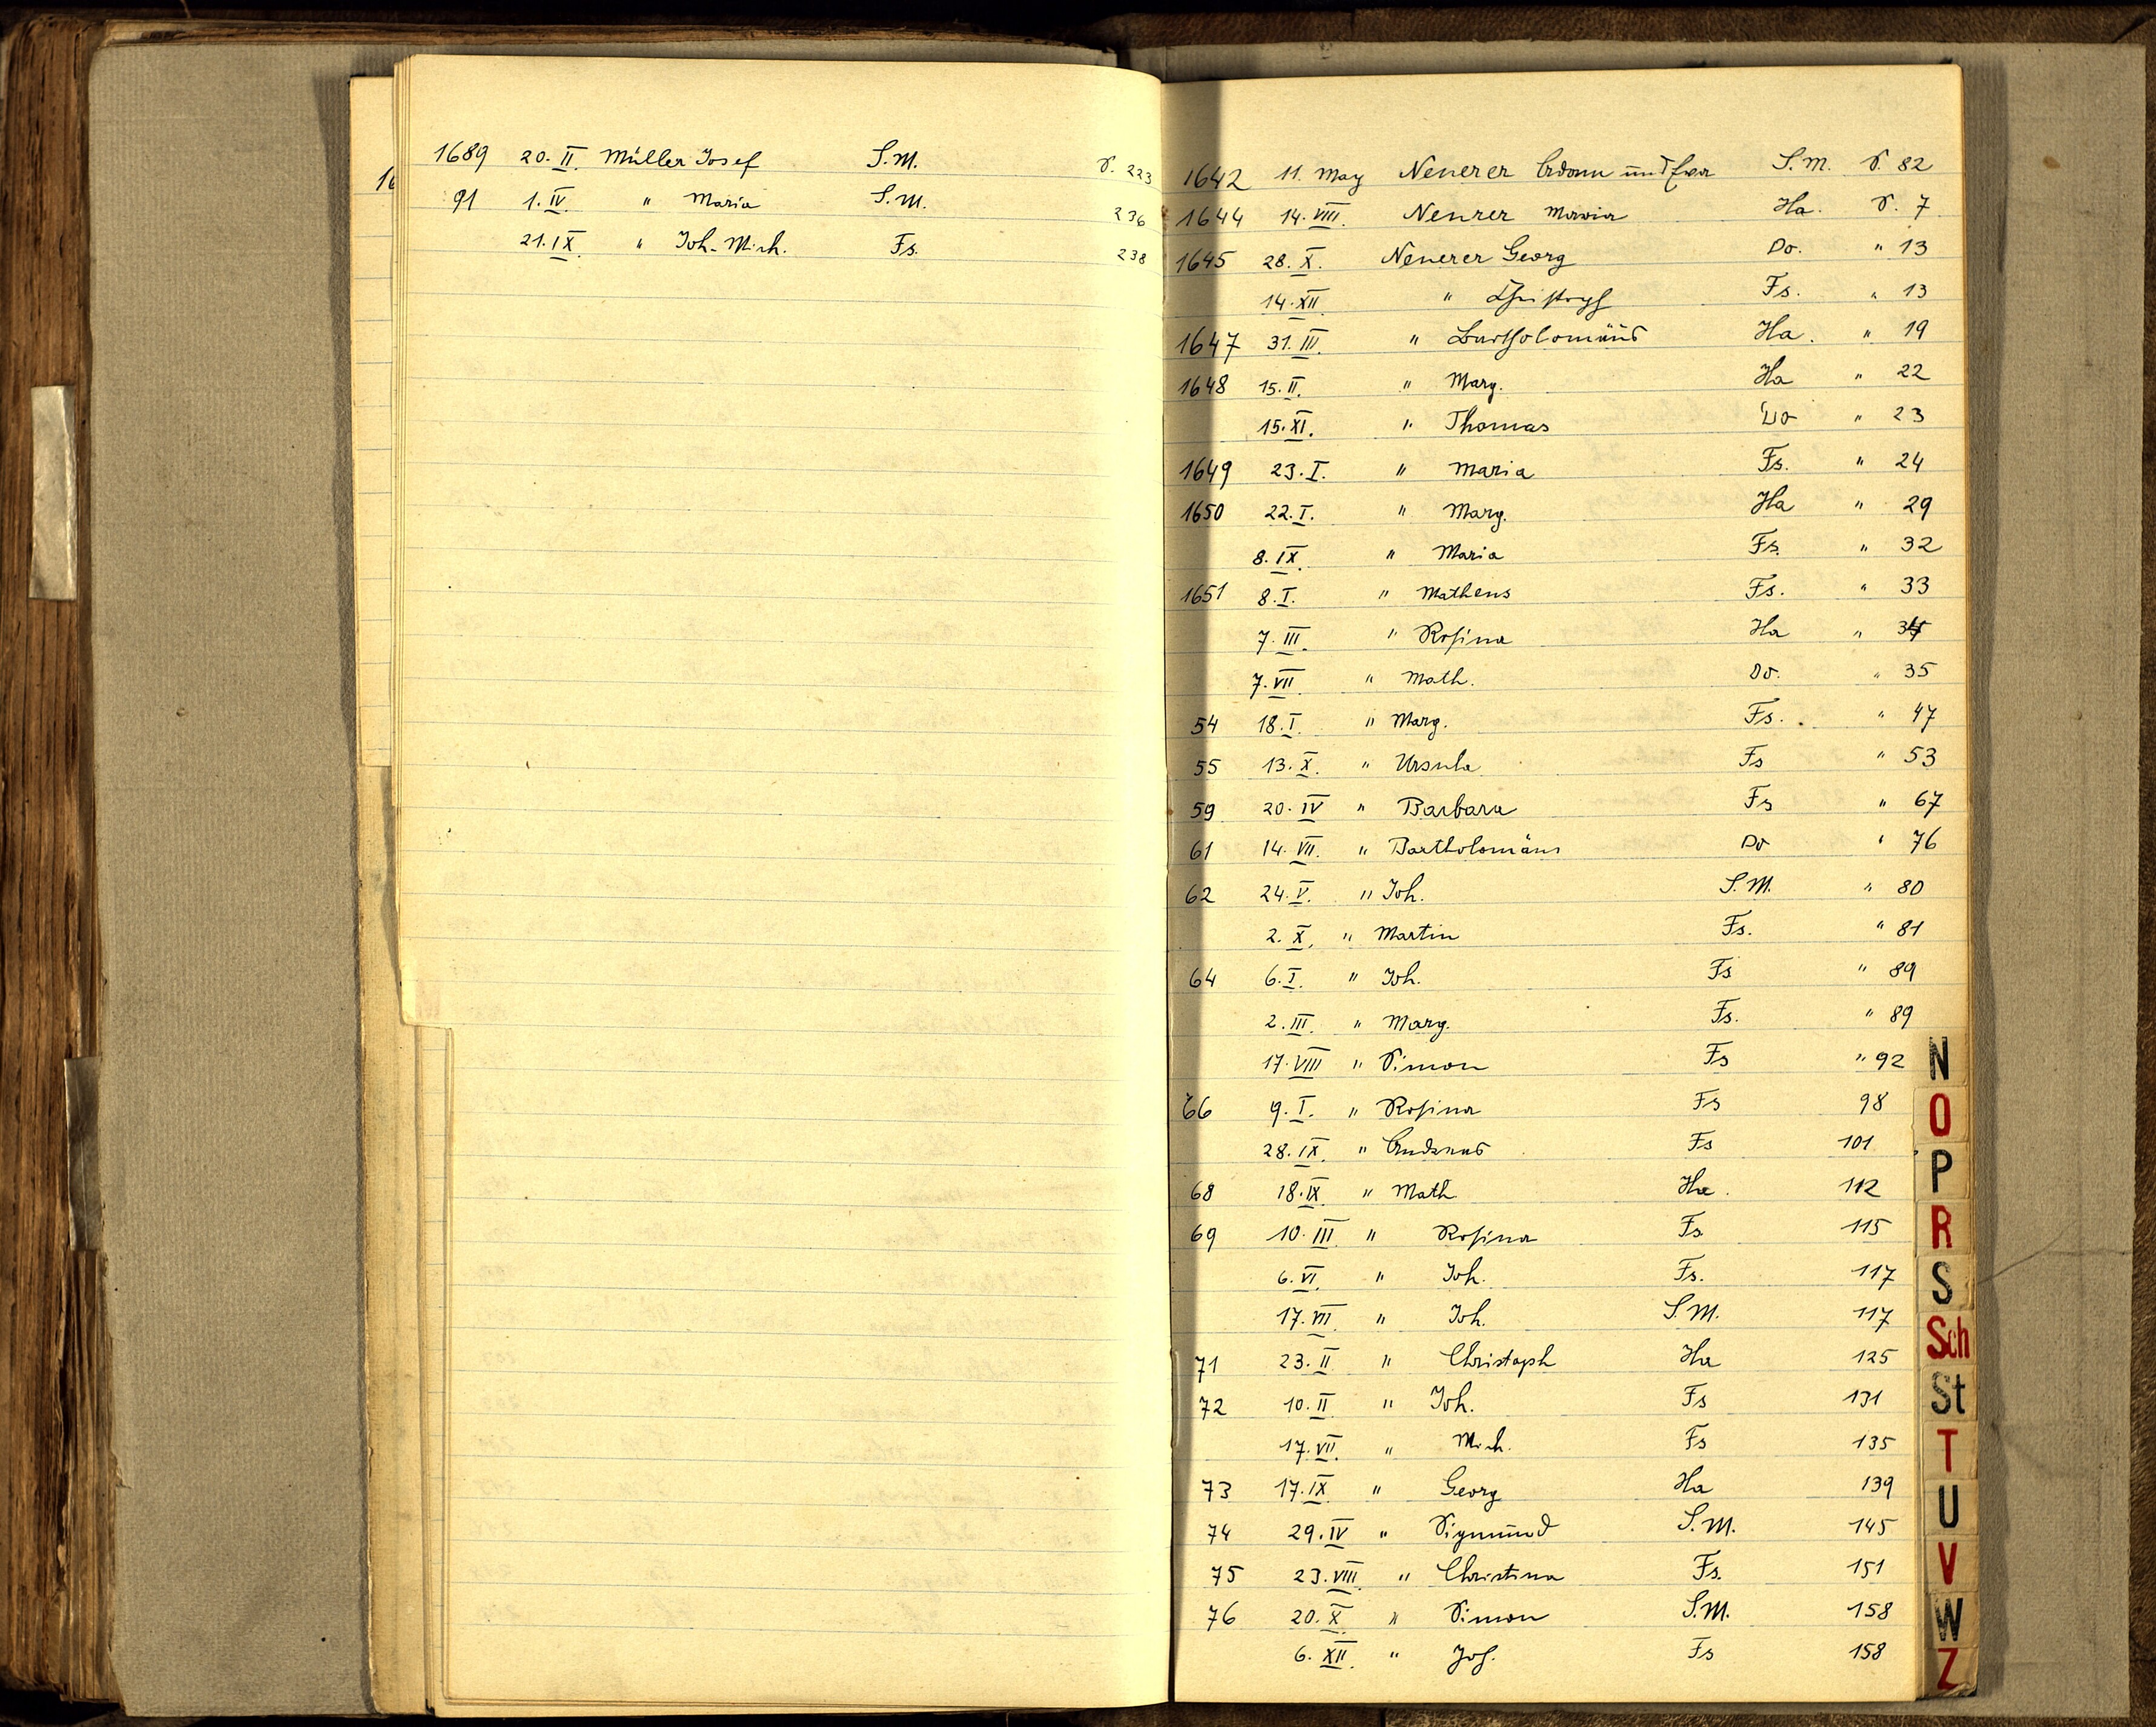 1689 20. II. Müller Josef S.M. S. 223
16
91 1. IV. " Maria S.M. 236
21. IX. " Joh. Mich. Fs. 238
1642 11. May Neuerer Adam und Eva S.M. S. 82
1644 14. VIII. Neurer Maria Ha. S. 7
1645 28. X. Neuerer Georg Do. " 13
14. XII. " Christoph Fs. " 13
1647 31. III. " Bartholomäus Ha. " 19
1648 15. II. " Marg. Ha " 22
15. XI. " Thomas Do " 23
1649 23. I. " Maria Fs. " 24
1650 22. I. " Marg. Ha " 29
8. IX. " Maria Fs. " 32
1651 8. I. " Matheus Fs. " 33
7. III. " Rosina Ha " 34
7. VII. " Math. Do. " 35
54 18. I. " Marg. Fs. " 47
55 13. X. " Ursula Fs " 53
59 20. IV " Barbara Fs " 67
61 14. VII. " Bartholomäus Do " 76
62 24. V. " Joh. S.M. " 80
2. X. " Martin Fs. " 81
64 6. I. " Joh. Fs " 89
2. III. " Marg. Fs. " 89
17. VIII " Simon Fs " 92
66 9. I. " Rosina Fs 98
28. IX. " Andreas Fs 101
68 18. IX " Math Ha. 112
69 10. III " Rosina Fs 115
6. VI. " Joh. Fs. 117
17. VII. " Joh. S.M. 117
71 23. II " Christoph Ha 125
72 10. II " Joh. Fs 131
17. VII. " Mich. Fs 135
73 17. IX " Georg Ha 139
74 29. IV " Sigmund S.M. 145
75 23. VIII " Christina Fs. 151
76 20. X " Simon S.M. 158
6. XII. " Joh. Fs 158
N
O
P
R
S
Sch
St
T
U
V
W
Z